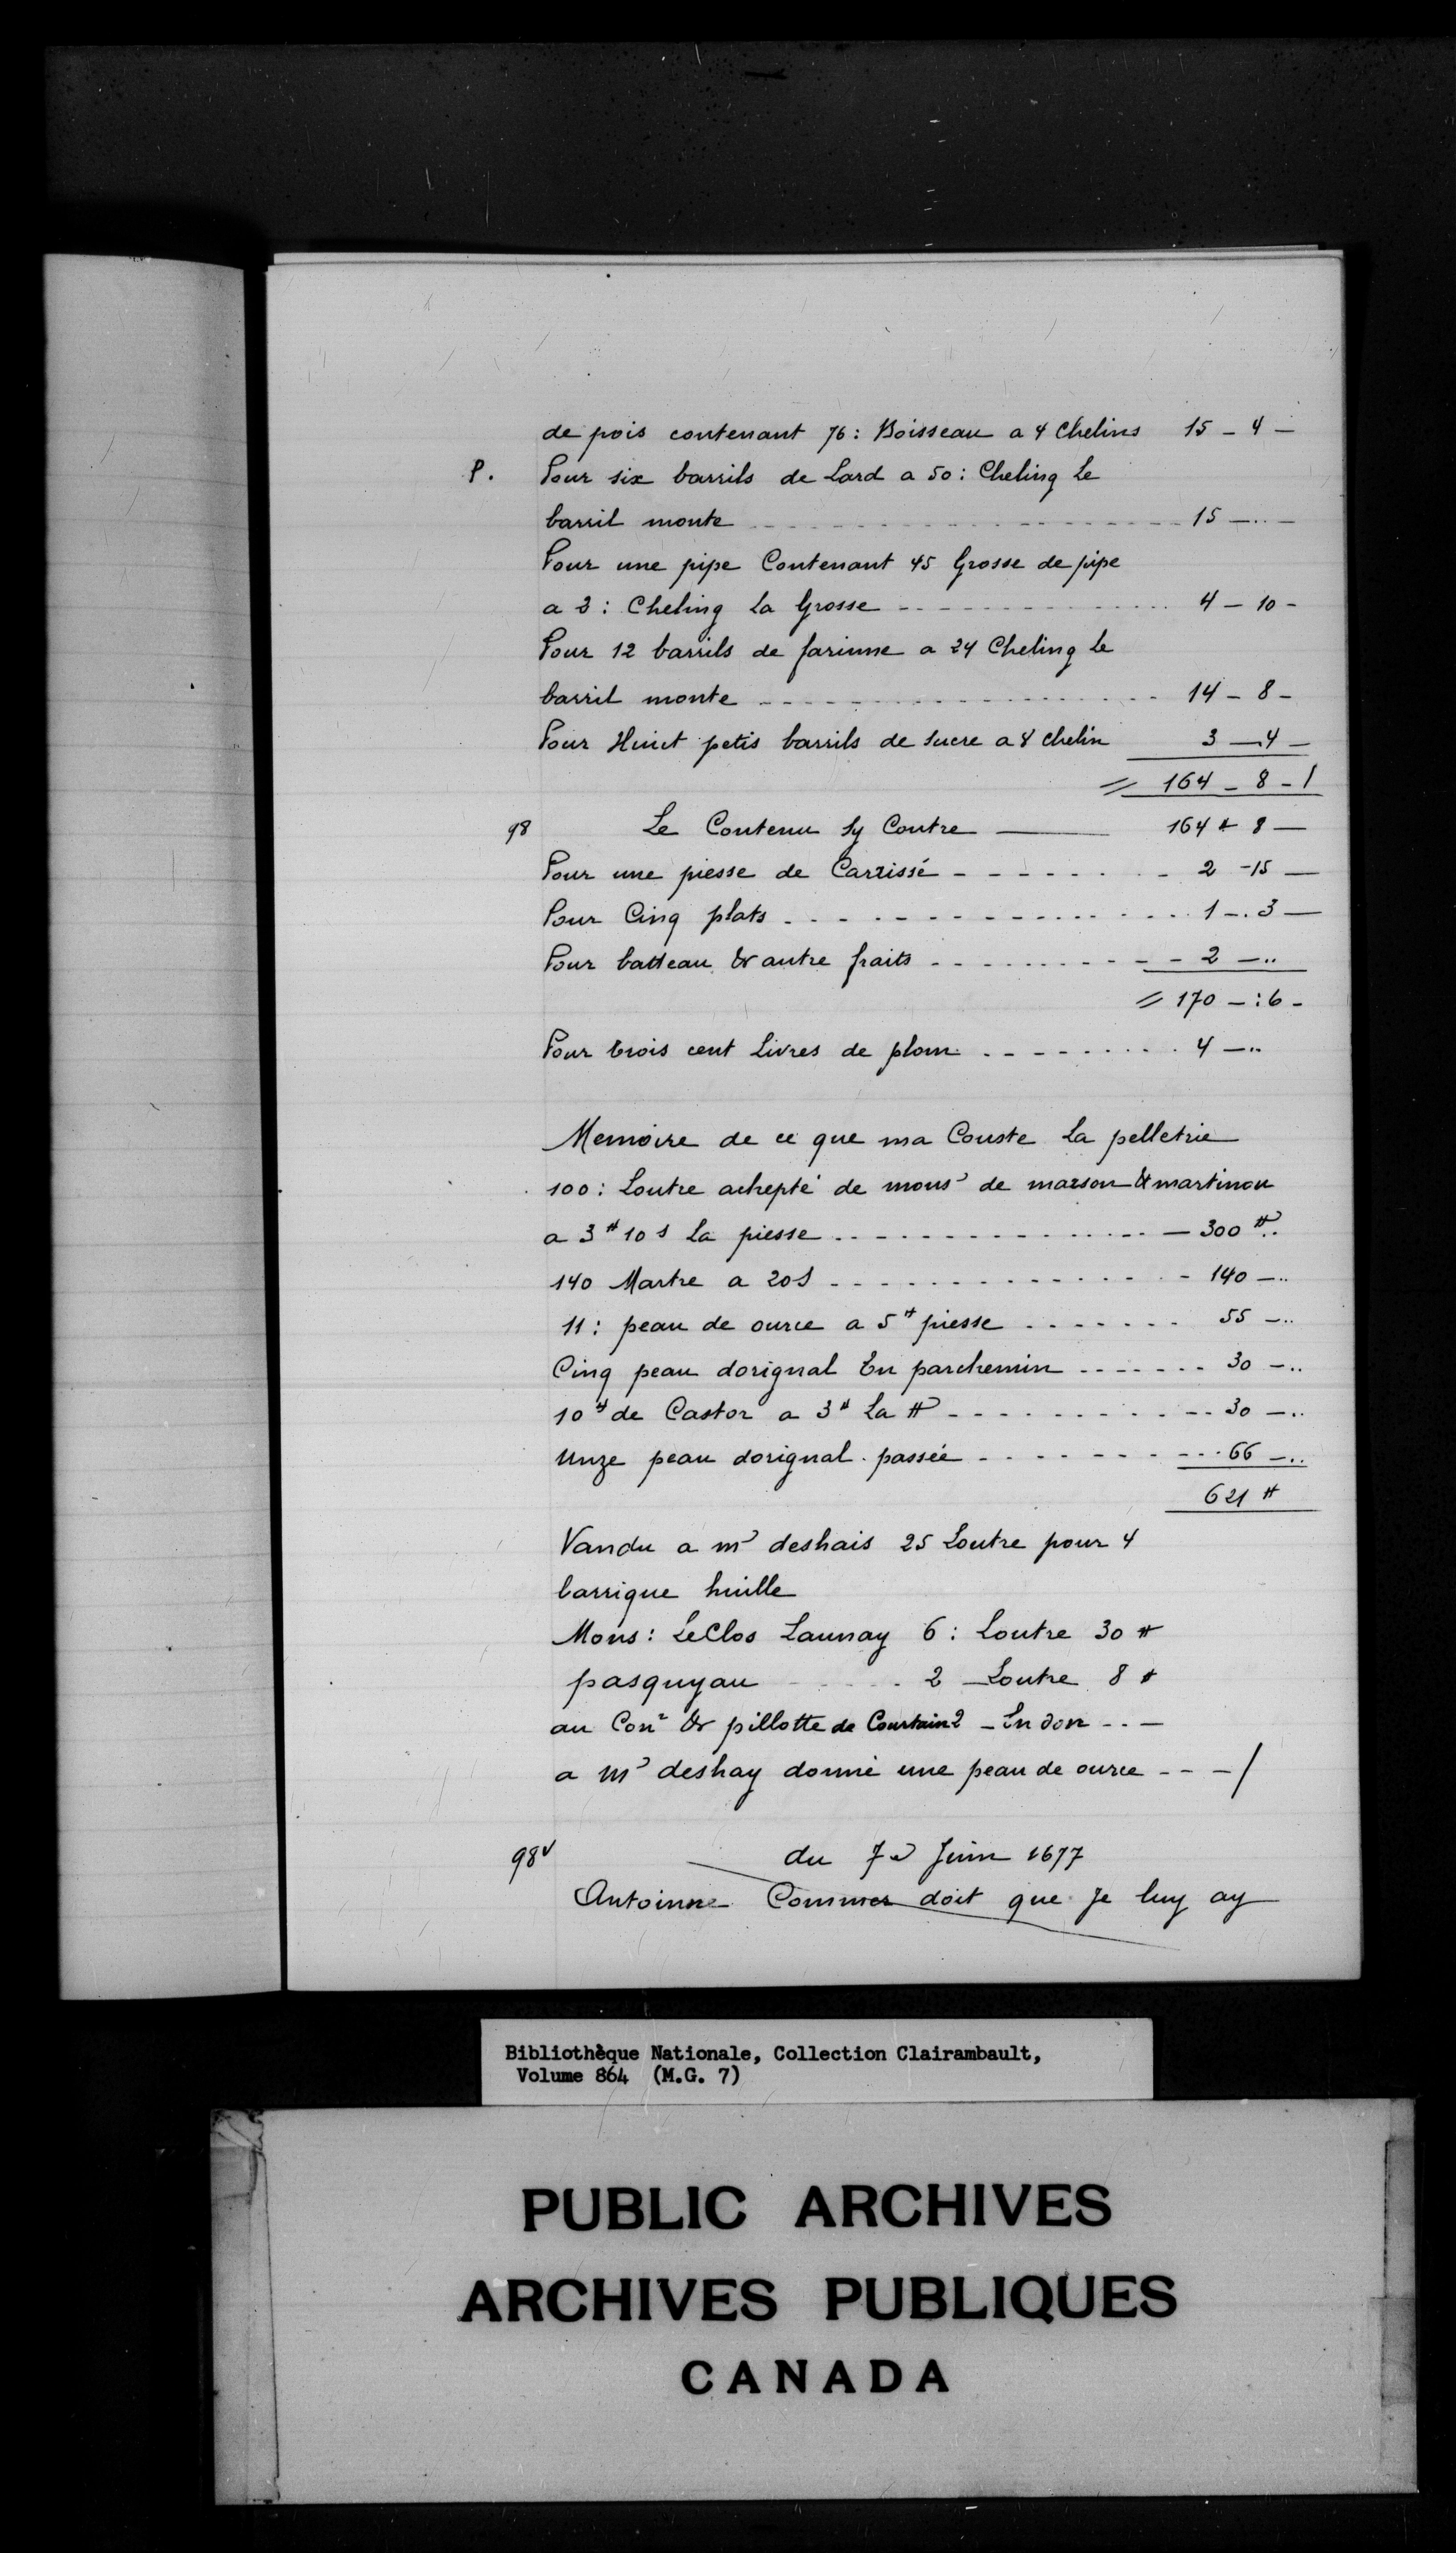 de pois contenant 76: Boisseau a 4 Chelins 15 - 4 -
P. Pour six barrils de Lard a 50: Cheling Le
barril monte 15 - .. -
Pour une pipe Contenant 45 Grosse de pipe
a 2: Cheling La Grosse 4 - 10 -
Pour 12 barrils de farinne a 24 Cheling Le
barril monte 14 - 8 -
Pour Huict petis barrils de Sucre a 8 chelin 3 - 4 -
= 164 - 8 - /
98 Le Contenu Sy Contre 164 # 8 -
Pour une piesse de Carrissé 2 - 15 -
Pour Cinq plats 1 - . 3 -
Pour batteau & autre fraits 2 - ..
= 170 - : 6 -
Pour trois cent Livres de plom 4 - ..
Memoire de ce que ma Couste La pelletrie
100: Loutre achepté de mons^r de marson & martinon
a 3# 10 s La piesse 300 # ..
140 Martre a 20 s 140 - ..
11: peau de ource a 5# piesse 55 - ..
Cinq peau dorignal En parchemin 30 - ..
10# de Castor a 3# La # 30 - ..
Unze peau dorignal passée 66 - ..
621 #
Vandu a m^r deshais 25 Loutre pour 4
barrique huille
Mons: LeClos Launay 6: Loutre 30 #
pasquyau 2 Loutre 8 #
au Con^r & pillotte de Courtain 2 - En don - . -
a m^r deshay donné une peau de ource - - - /
98v du 7e Juin 1677
Antoinne Commer doit que Je luy ay
Bibliothèque Nationale, Collection Clairambault,
Volume 864 (M.G. 7)
PUBLIC ARCHIVES
ARCHIVES PUBLIQUES
CANADA